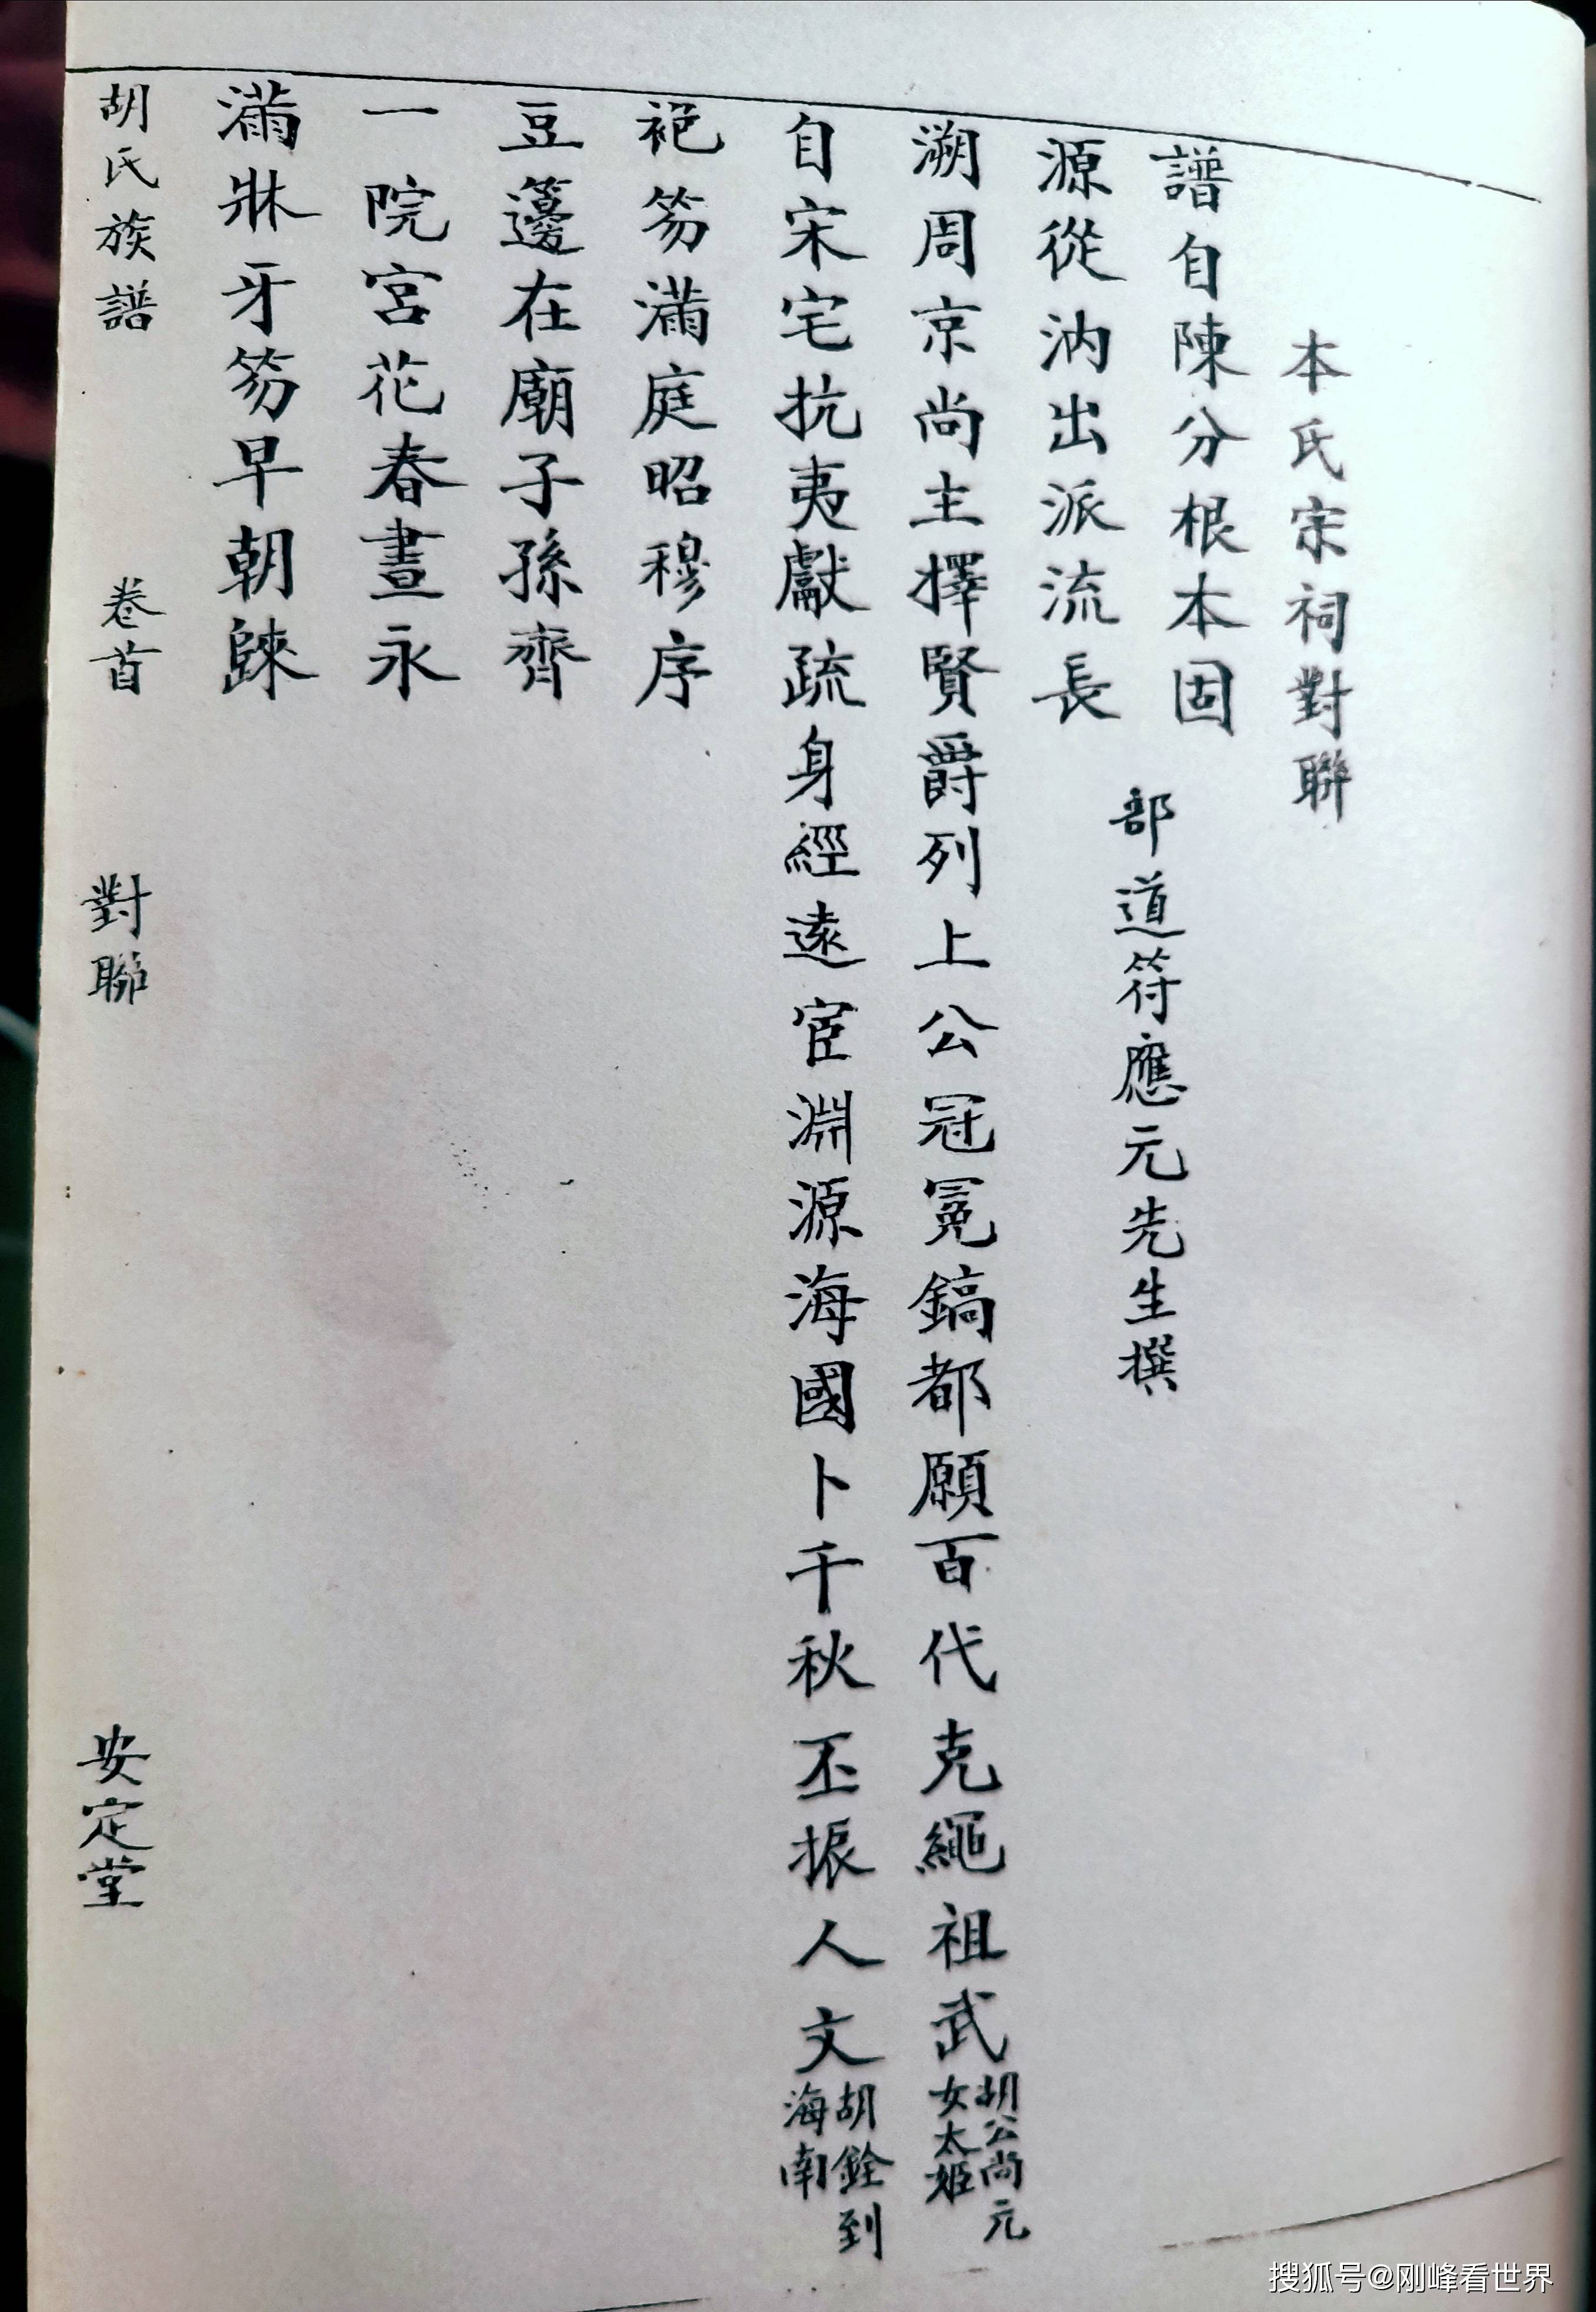 本氏宗祠對聯
譜自陳分根本固
源從汭出派流長
部道符應元先生撰
溯周京尚主擇賢爵列上公冠冕鎬都願百代克繩祖武
胡公尚元
女太姬
自宋宅抗夷獻疏身經遠宦淵源海國卜千秋丕振人文
胡銓到
海南
袍笏滿庭昭穆序
豆籩在廟子孫齊
一院宮花春晝永
滿牀牙笏早朝歸
胡氏族譜 卷首 對聯 安定堂
搜狐号@刚峰看世界